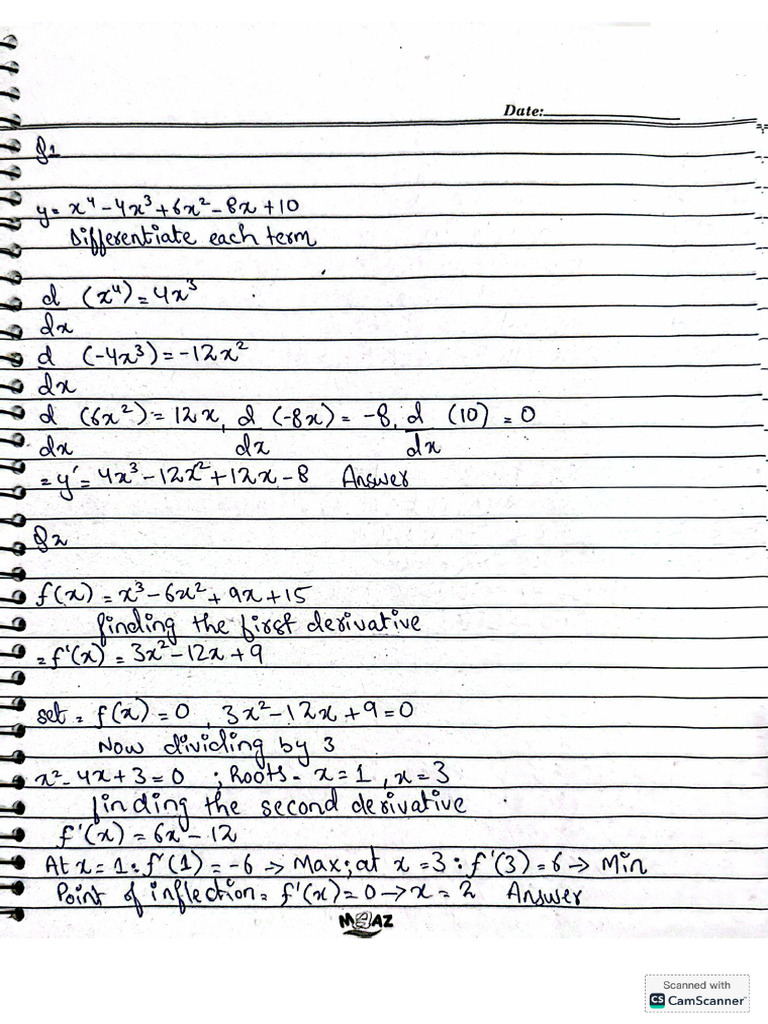 Date:
Q1
y = x⁴ - 4x³ + 6x² - 8x + 10
Differentiate each term
d (x⁴) = 4x³
dx
d (-4x³) = -12x²
dx
d (6x²) = 12x, d (-8x) = -8, d (10) = 0
dx dx dx
= y' = 4x³ - 12x² + 12x - 8 Answer
Q2
f(x) = x³ - 6x² + 9x + 15
finding the first derivative
= f'(x) = 3x² - 12x + 9
set = f(x) = 0, 3x² - 12x + 9 = 0
Now dividing by 3
x² - 4x + 3 = 0 ; Roots - x = 1, x = 3
finding the second derivative
f'(x) = 6x - 12
At x = 1 : f'(1) = -6 → Max; at x = 3 : f'(3) = 6 → Min
Point of inflection = f'(x) = 0 → x = 2 Answer
MOAZ
Scanned with
CS CamScanner